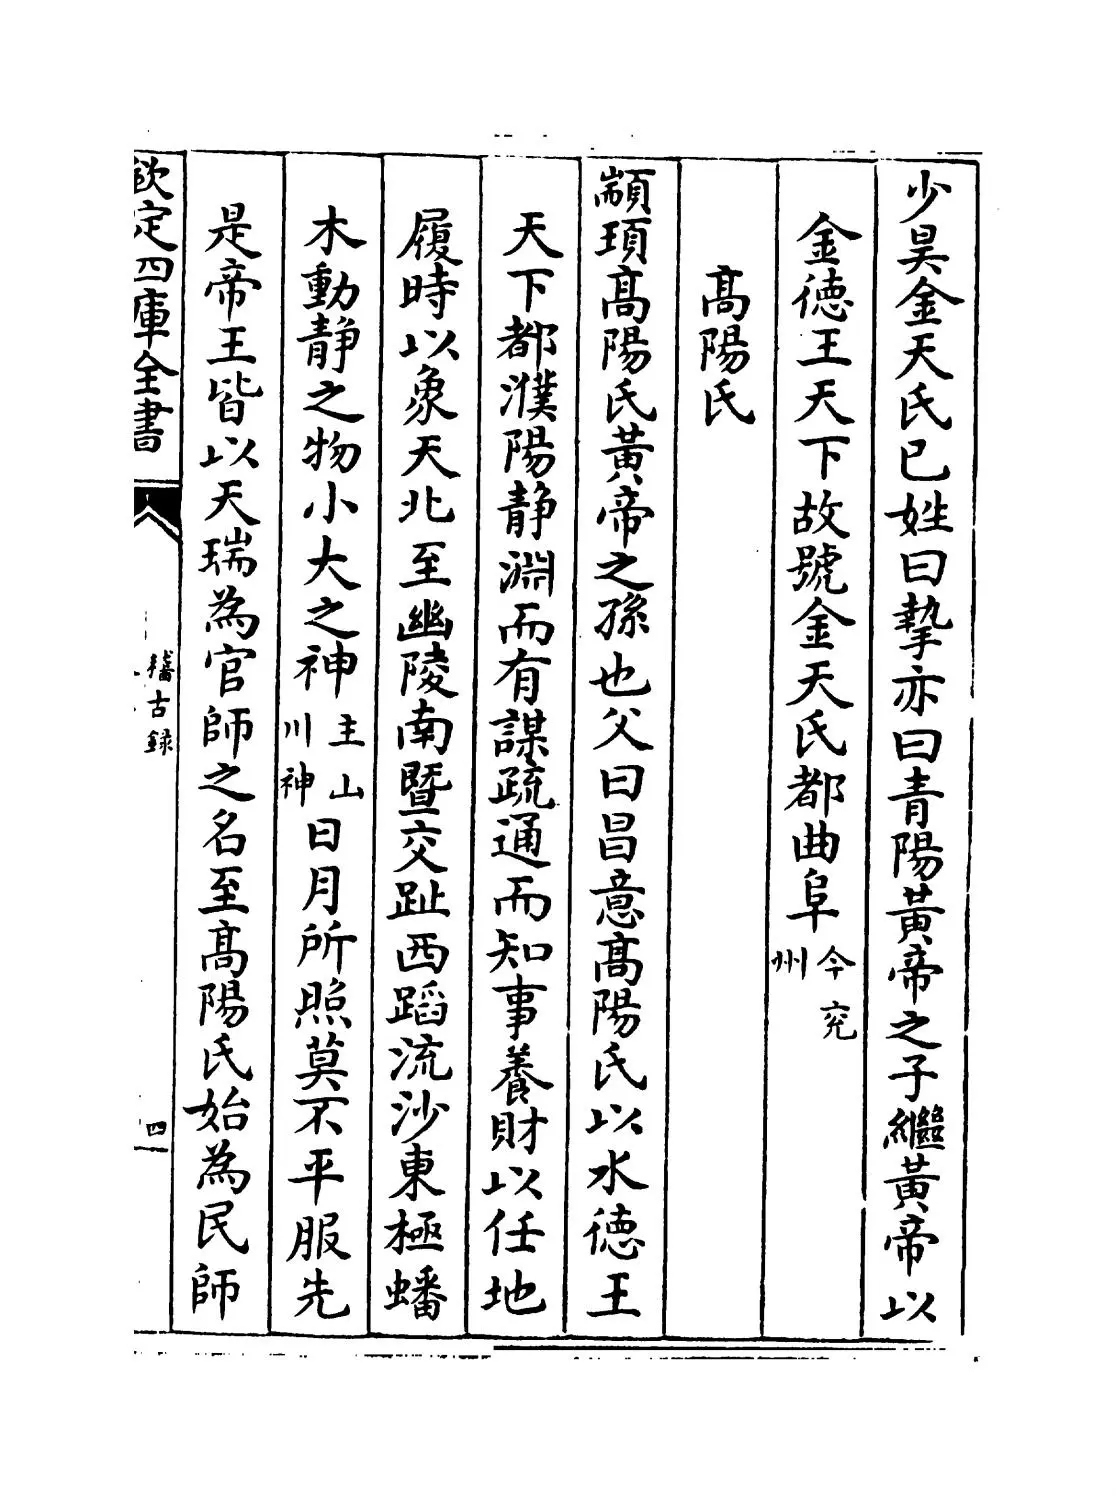 少昊金天氏巳姓曰摯亦曰青陽黃帝之子繼黃帝以
金徳王天下故號金天氏都曲阜今兖州
髙陽氏
顓頊髙陽氏黃帝之孫也父曰昌意髙陽氏以水徳王
天下都濮陽静淵而有謀疏通而知事養財以任地
履時以象天北至幽陵南暨交趾西蹈流沙東極蟠
木動静之物小大之神主山川神日月所照莫不平服先
是帝王皆以天瑞為官師之名至髙陽氏始為民師
欽定四庫全書
稽古録
四